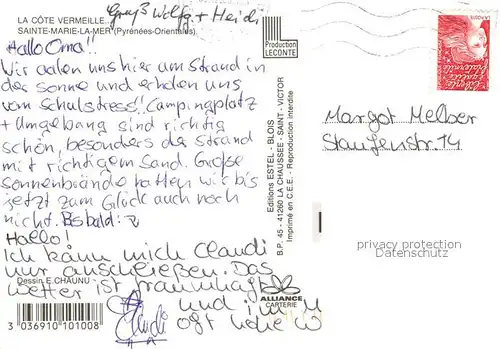 LA CÔTE VERMEILLE...
SAINTE-MARIE-LA-MER (Pyrénées-Orientales)
Gruß Wolfg. + Heidi
Hallo Oma!!
Wir aalen uns hier am Strand in
der Sonne und erholen uns
vom Schulstress! Campingplatz
+ Umgebung sind richtig
schön, besonders der Strand
mit richtigem Sand. Große
Sonnenbrände hatten wir bis
jetzt zum Glück auch noch
nicht. Bis bald:
Hallo!
Ich kann mich Claudi
nur anschließen. Das
Wetter ist traumhaft
und im M
oft hohe W
Claudi
Dessin E.CHAUNU
3 036910 101008
Production
LECONTE
Editions ESTEL - BLOIS
B.P. 45 - 41260 LA CHAUSSEE - SAINT - VICTOR
Imprimé en C.E.E. - Reproduction interdite
ALLIANCE
CARTERIE
LA POSTE
Liberté
Egalité
Fraternité
Margot Melber
Staufenstr. 14
privacy protection
Datenschutz